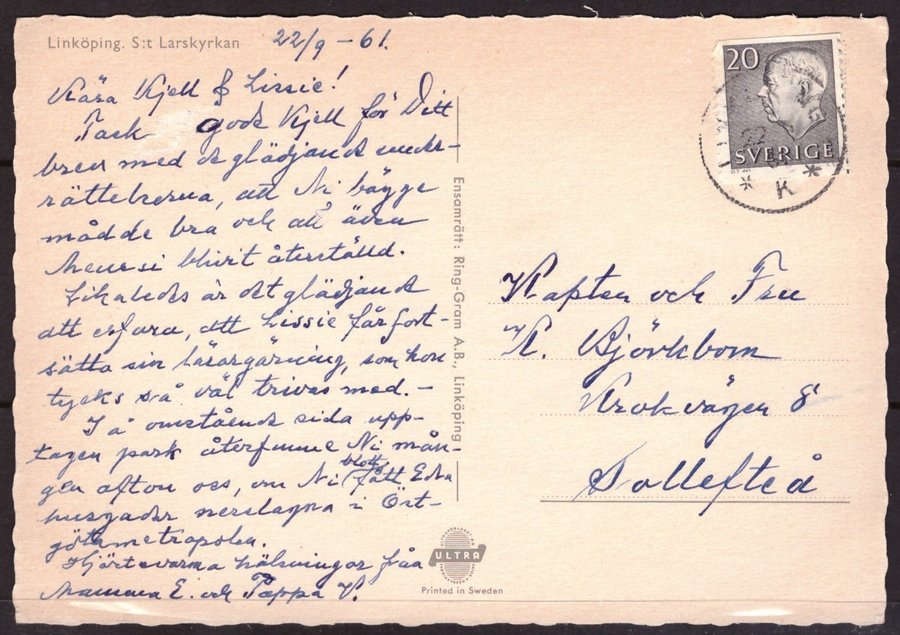 Linköping. S:t Larskyrkan
22/9 - 61.
Kära Kjell & Lissie!
Tack gode Kjell för Ditt
brev med de glädjande under-
rättelserna, att Ni bägge
mådde bra och att även
blivit återställd.
Likaledes är det glädjande
att erfara, att Lissie får fort-
sätta sin lärargärning, som hon
tycks så väl trivas med. -
I å omstående sida upp-
tagen park återfinne Ni mån-
gen afton oss, om Ni blott fått Edra
husgader nerslagna i Öst-
götametropolen.
Hjärtevarma hälsningar från
Mamma E. och Pappa K.
Ensamrätt: Ring-Gram A.B., Linköping
ULTRA
Printed in Sweden
20
SVERIGE
22
K
Kapten och Fru
K. Björkbom
Krokvägen 8
Sollefteå